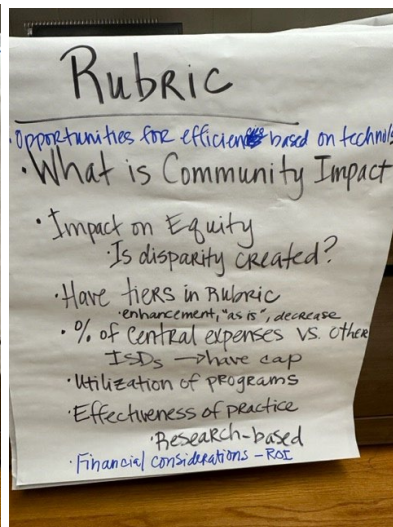 Rubric
·Opportunities for efficiencies based on technolo
·What is Community Impact
·Impact on Equity
·Is disparity created?
·Have tiers in Rubric
·enhancement, "as is", decrease
·% of Central expenses vs. other
ISDs →have cap
·Utilization of programs
·Effectiveness of practice
·Research-based
·Financial considerations - ROI